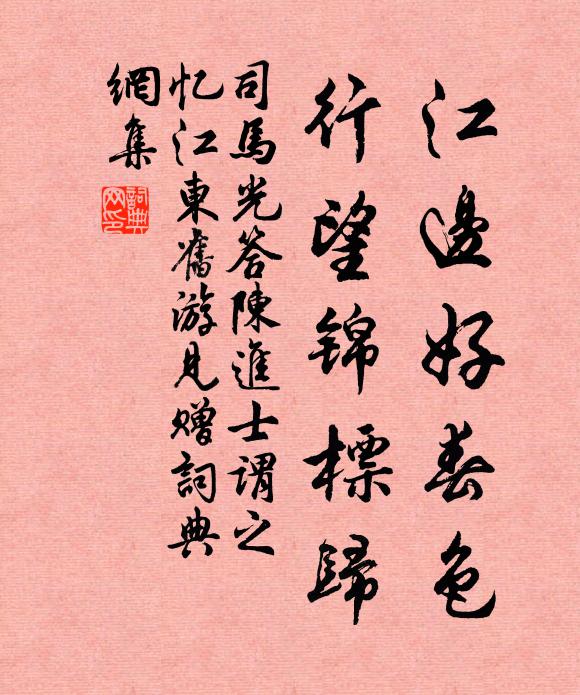 江邊好春色
行望錦標歸
司馬光答陳進士謂之
忆江東舊游見贈詞典
網集
詞典網印